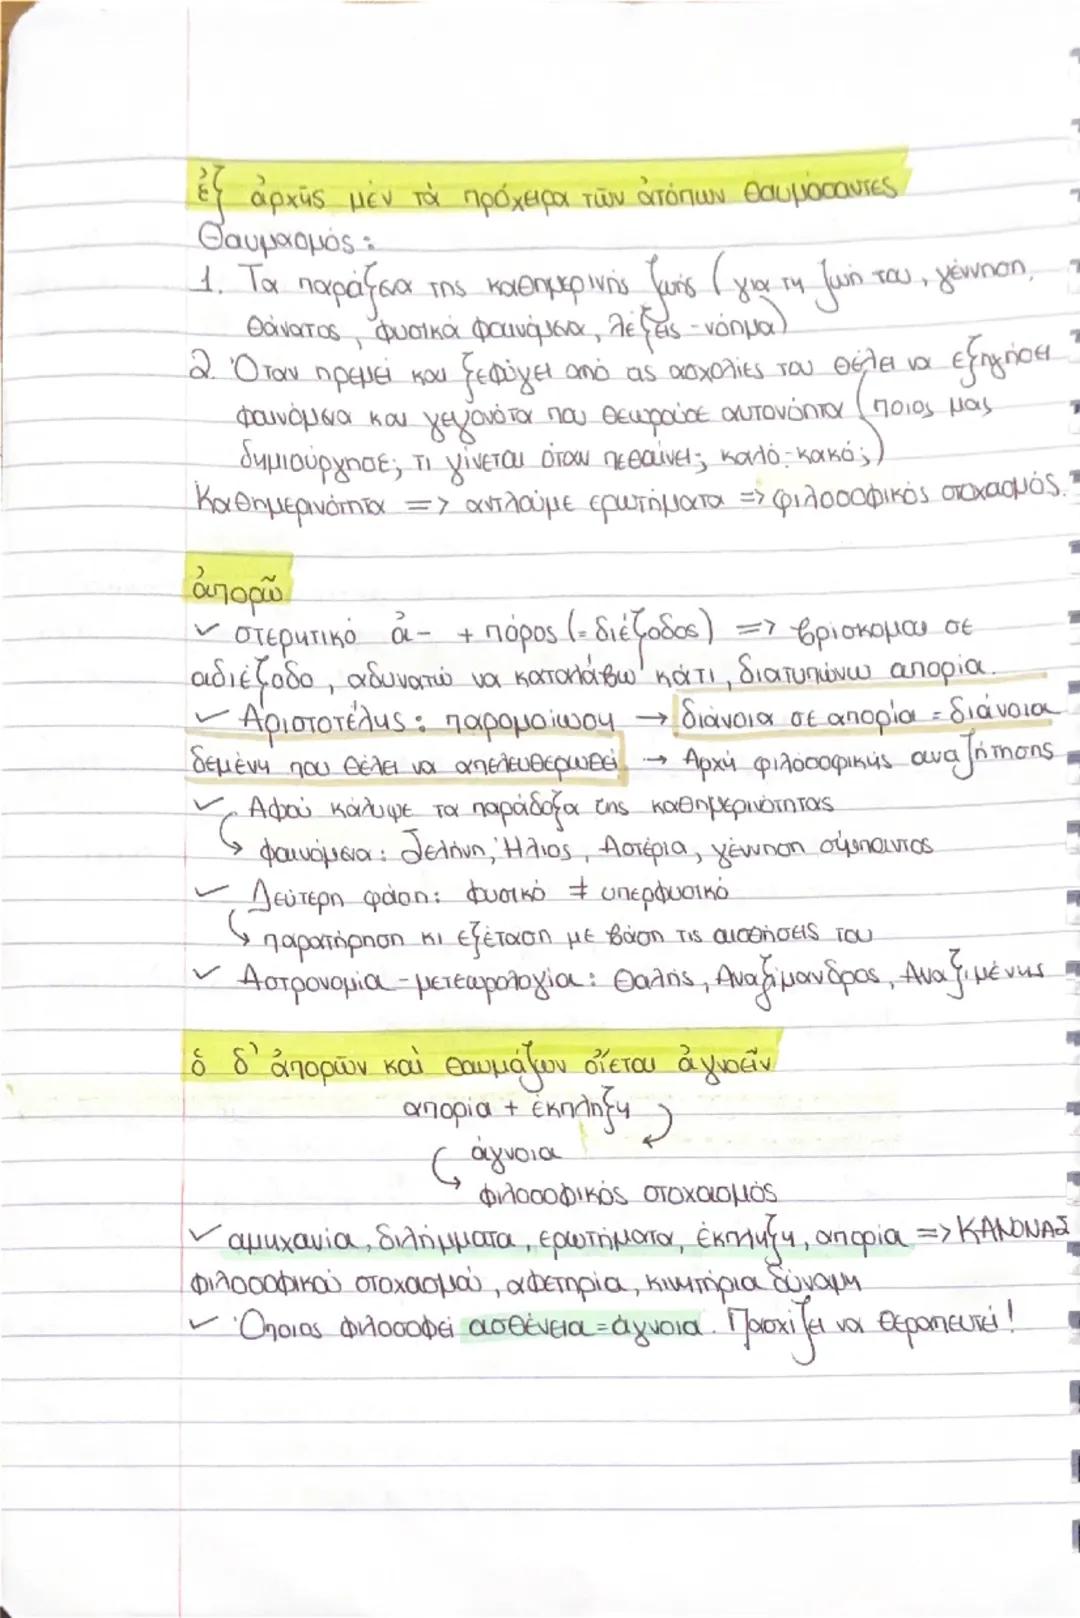 ἐξ ἀρχῆς μέν τά πρόχειρα τῶν ἀτόπων θαυμάσαντες
Θαυμασμός:
1. Τα παράξενα της καθημερινής ζωής (για τη ζωή του, γέννηση,
θάνατος, φυσικά φαινόμενα, λέξεις - νόημα)
2. Όταν ηρεμεί και ξεφύγει από τις ασχολίες του θέλει να εξηγήσει
φαινόμενα και γεγονότα που θεωρούσε αυτονόητα (ποιος μας
δημιούργησε; τι γίνεται όταν πεθαίνει; καλό-κακό;)
Καθημερινότητα => αντλούμε ερωτήματα => φιλοσοφικός στοχασμός.
ἀπορῶ
✓ στερητικό ἀ- + πόρος (= διέξοδος) => βρίσκομαι σε
αδιέξοδο, αδυνατώ να καταλάβω κάτι, διατυπώνω απορία.
✓ Αριστοτέλης: παρομοίωση → διάνοια σε απορία = διάνοια
δεμένη που θέλει να απελευθερωθεί → Αρχή φιλοσοφικής αναζήτησης
✓ Αφού κάλυψε τα παράδοξα της καθημερινότητας
↳ φαινόμενα: Σελήνη, Ήλιος, Αστέρια, γέννηση σύμπαντος
✓ Δεύτερη φάση: φυσικό ≠ υπερφυσικό
↳ παρατήρηση κι εξέταση με βάση τις αισθήσεις του
✓ Αστρονομία - μετεωρολογία: Θαλής, Αναξίμανδρος, Αναξιμένης
ὁ δ' ἀπορῶν καί θαυμάζων οἴεται ἀγνοεῖν
απορία + έκπληξη
άγνοια
↳ φιλοσοφικός στοχασμός
✓ αμηχανία, διλήμματα, ερωτήματα, έκπληξη, απορία => ΚΑΝΟΝΑΣ
φιλοσοφικού στοχασμού, αφετηρία, κινητήρια δύναμη
✓ Όποιος φιλοσοφεί ασθένεια = άγνοια. Πασχίζει να θεραπευτεί!